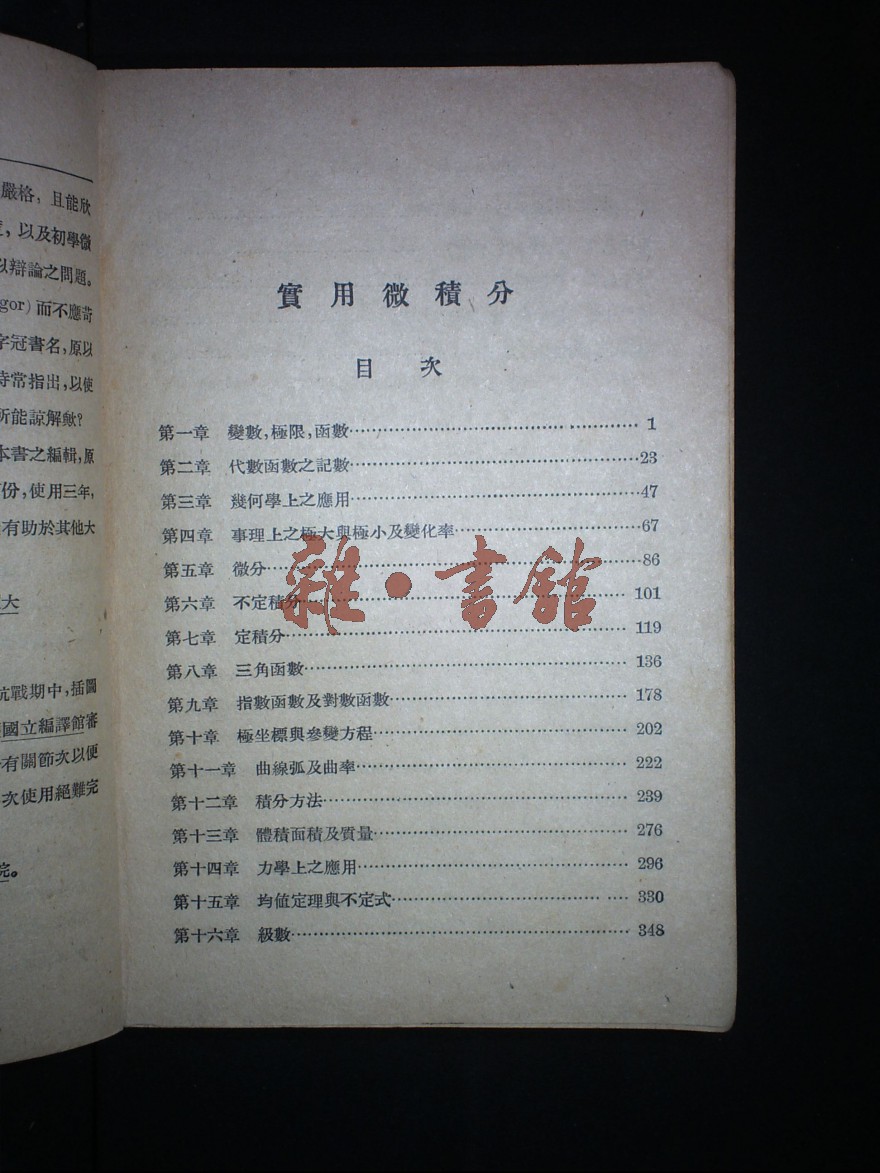 嚴格，且能欣
，以及初學微
以辯論之問題。
gor) 而不應苛
字冠書名，原以
時常指出，以使
所能諒解歟？
本書之編輯，原
份，使用三年，
有助於其他大
大
抗戰期中，插圖
國立編譯館審
有關節次以便
次使用絕難完
院。
實用微積分
目次
第一章 變數，極限，函數 1
第二章 代數函數之記數 23
第三章 幾何學上之應用 47
第四章 事理上之極大與極小及變化率 67
第五章 微分 86
第六章 不定積分 101
第七章 定積分 119
第八章 三角函數 136
第九章 指數函數及對數函數 178
第十章 極坐標與參變方程 202
第十一章 曲線弧及曲率 222
第十二章 積分方法 239
第十三章 體積面積及質量 276
第十四章 力學上之應用 296
第十五章 均值定理與不定式 330
第十六章 級數 348
雜·書館